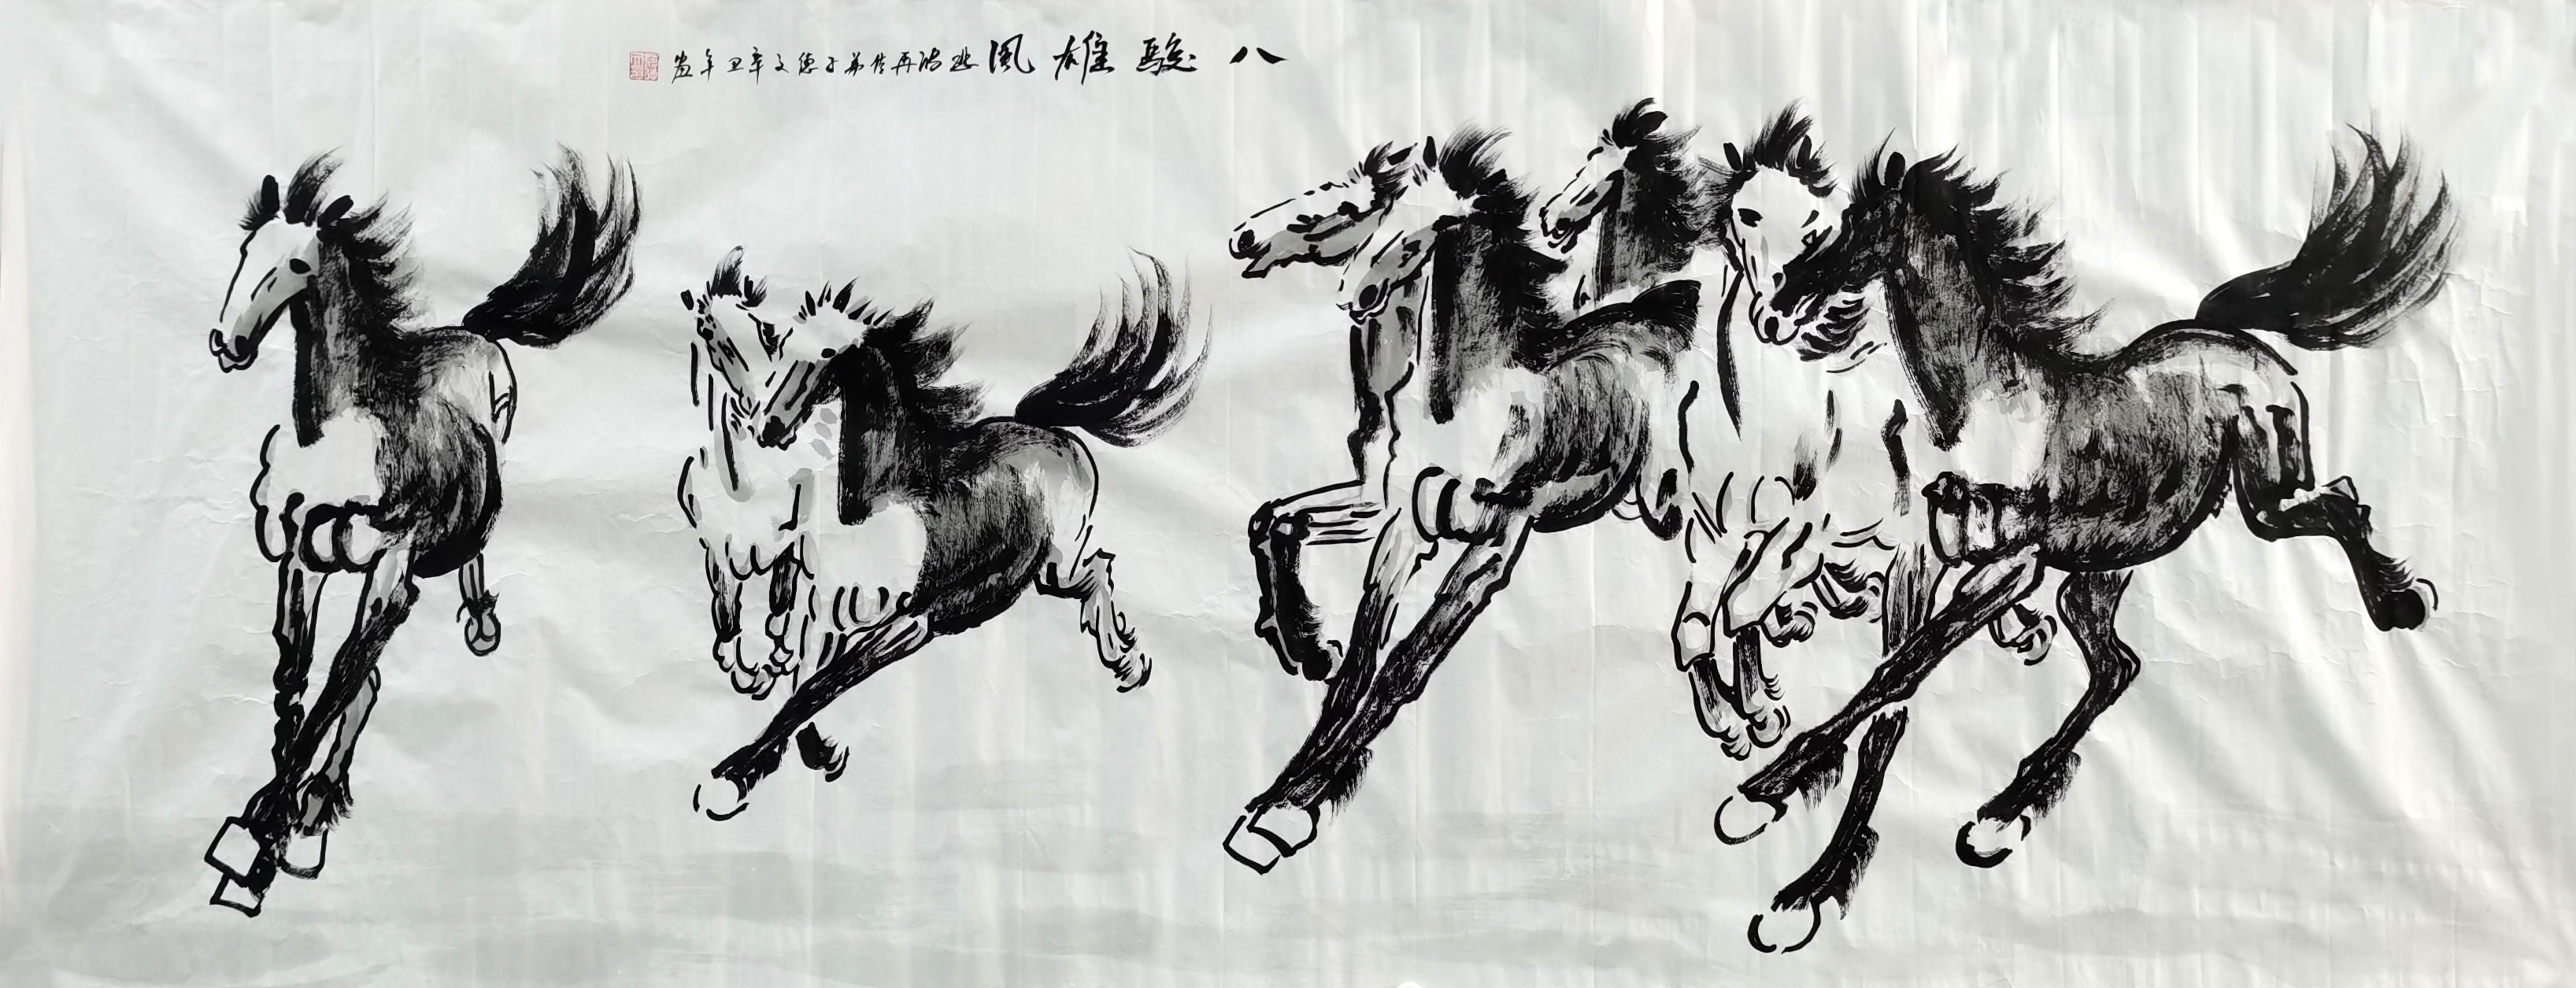 八駿雄風 悲鴻再传弟子德文辛丑年岁